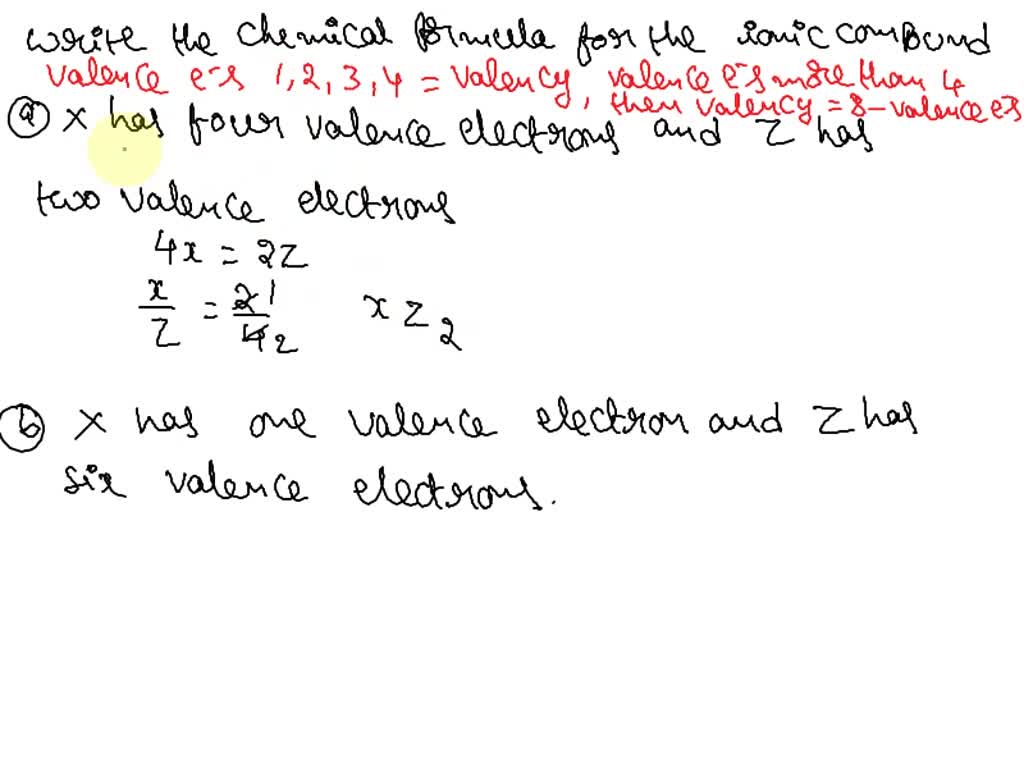 write the chemical formula for the ionic compound
valence e-s 1,2,3,4 = valency, valence e-s more than 4
, then valency = 8 - valence e-s
a x has four valence electrons and Z has
two valence electrons
4x = 2Z
x/Z = 2 1/4 2 x z2
b x has one valence electron and Z has
six valence electrons.